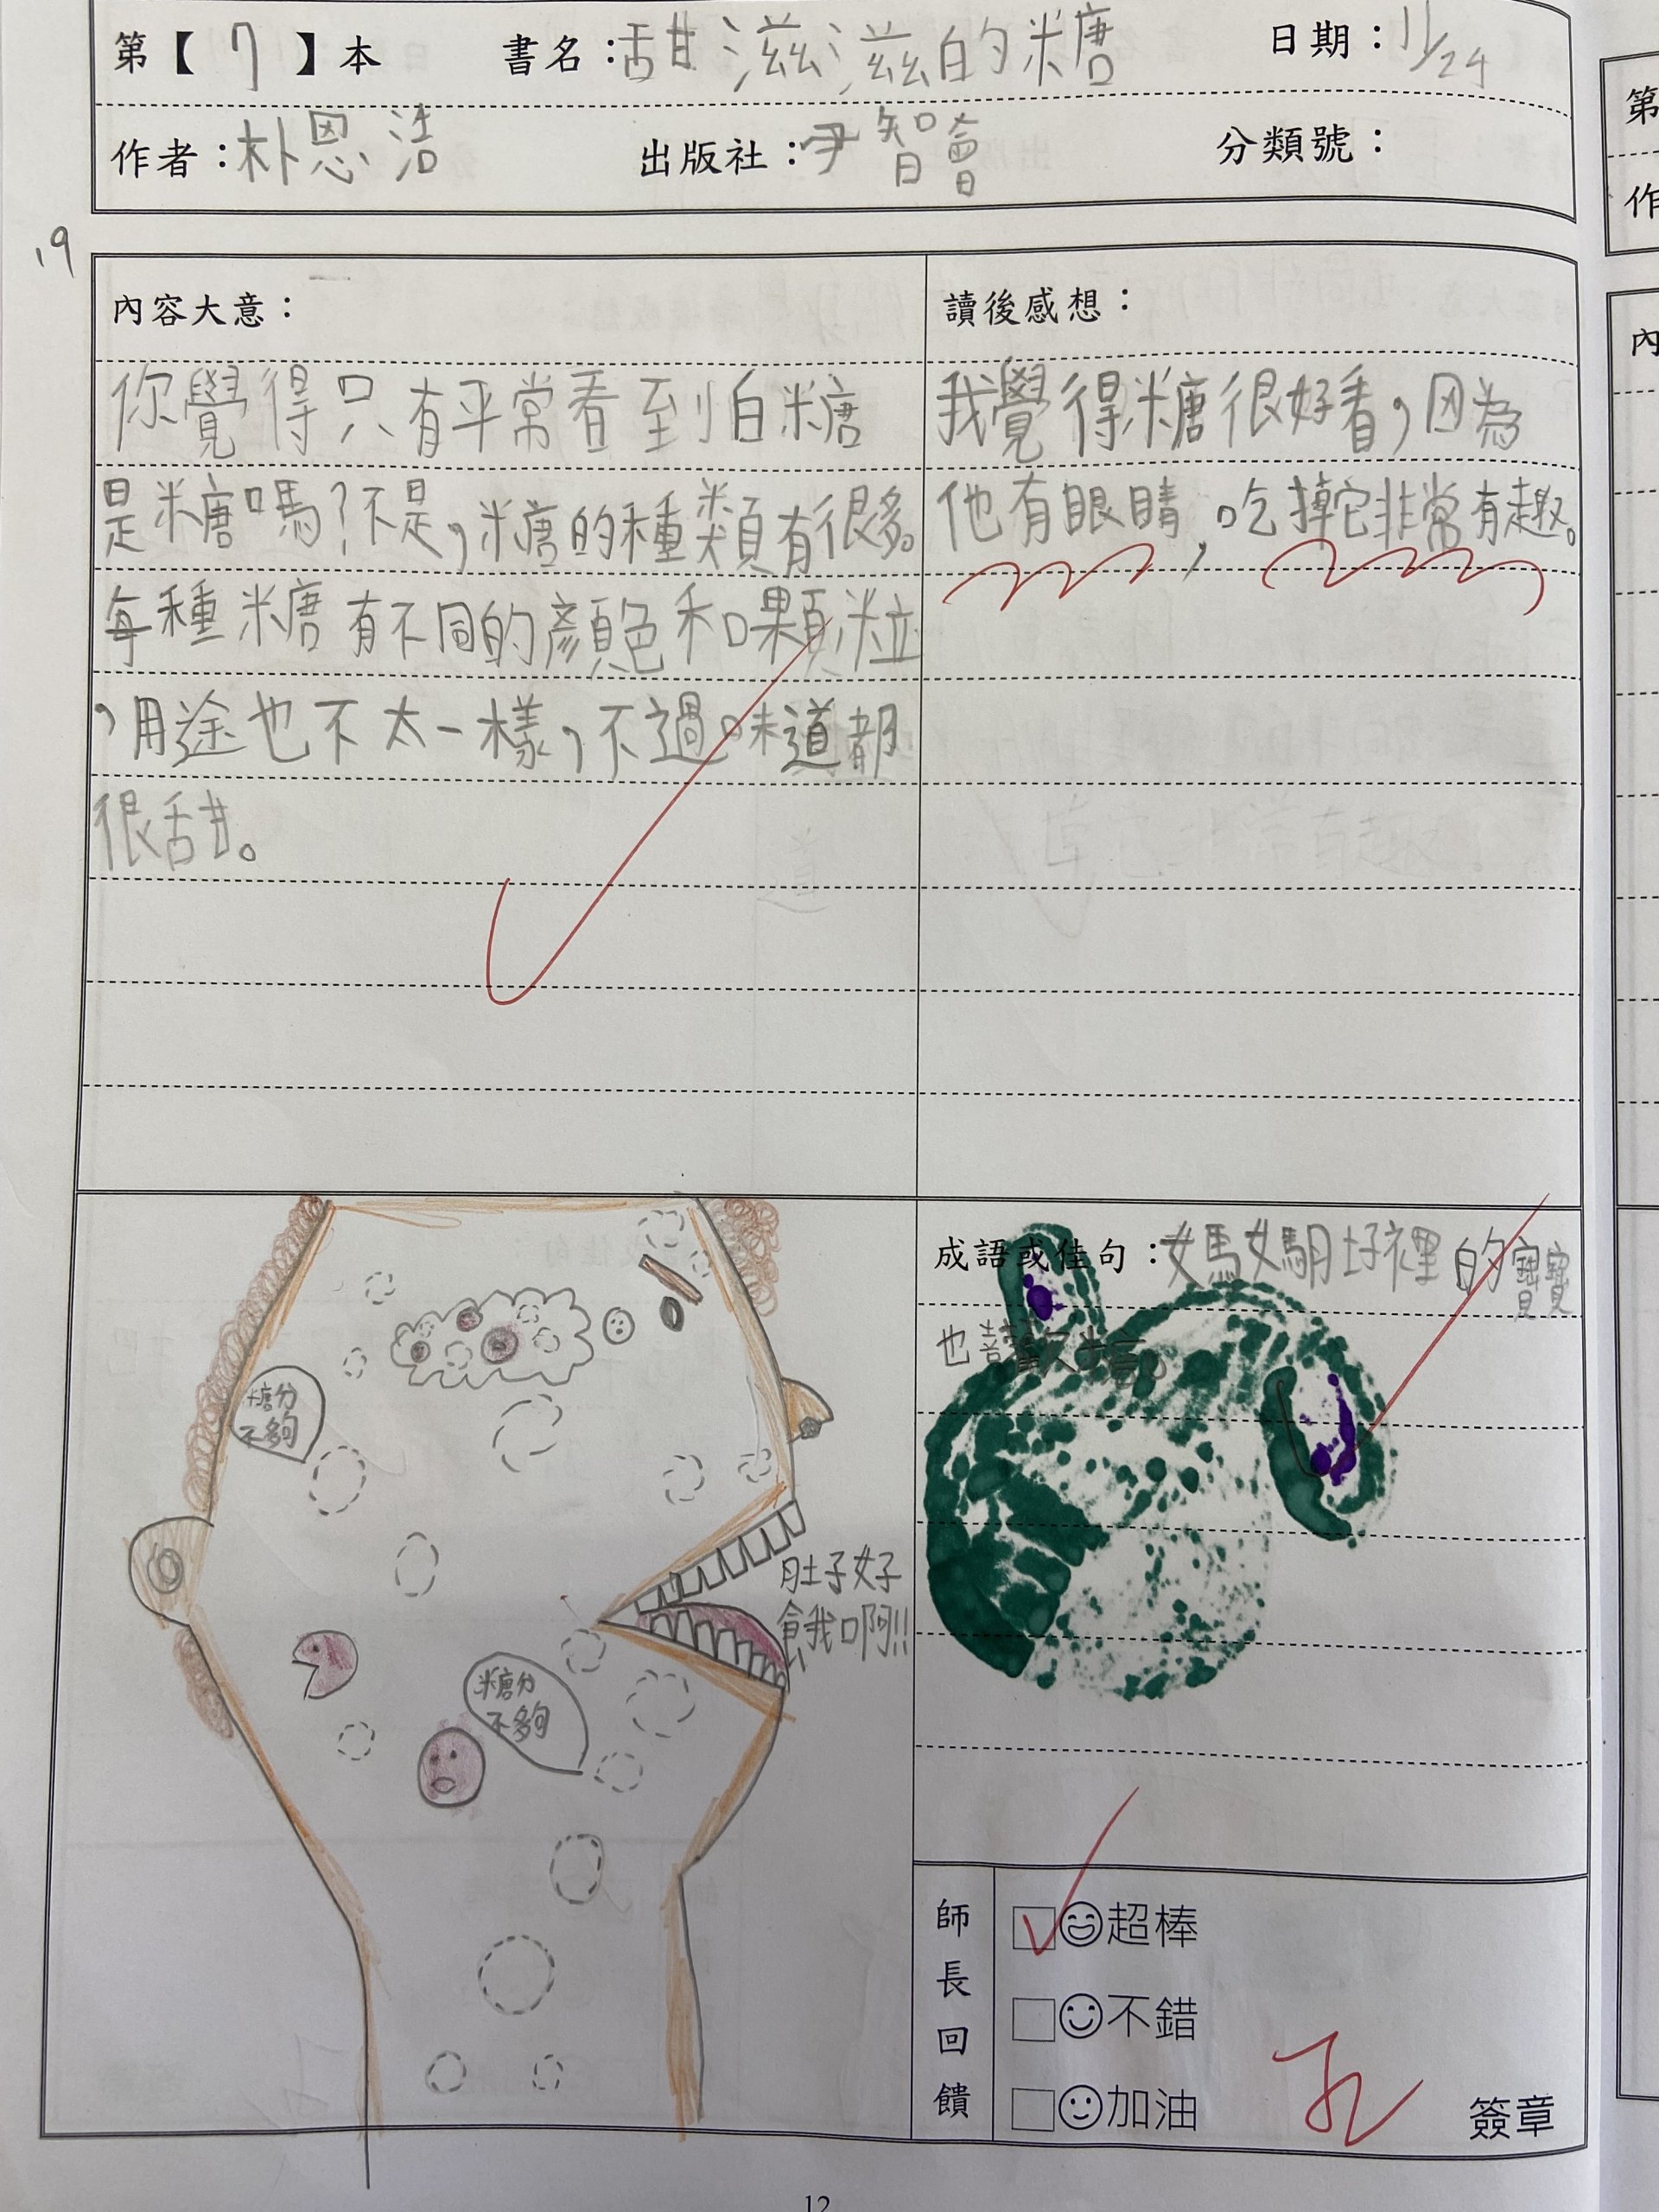 第【7】本 書名：甜滋滋的糖 日期：11/24
作者：朴恩浩 出版社：尹智會 分類號：
19
內容大意：
你覺得只有平常看到怕糖
是糖嗎？不是，糖的種類有很多。
每種糖有不同的顏色和顆粒
，用途也不太一樣，不過味道都
很甜。
讀後感想：
我覺得糖很好看，因為
他有眼睛，吃掉它非常有趣。
糖分
不夠
肚子好
餓我啊!!
糖分
不夠
成語或佳句：媽媽肚裡的寶寶
也喜歡糖。
師長回饋
超棒
不錯
加油
簽章
12
第
作
內